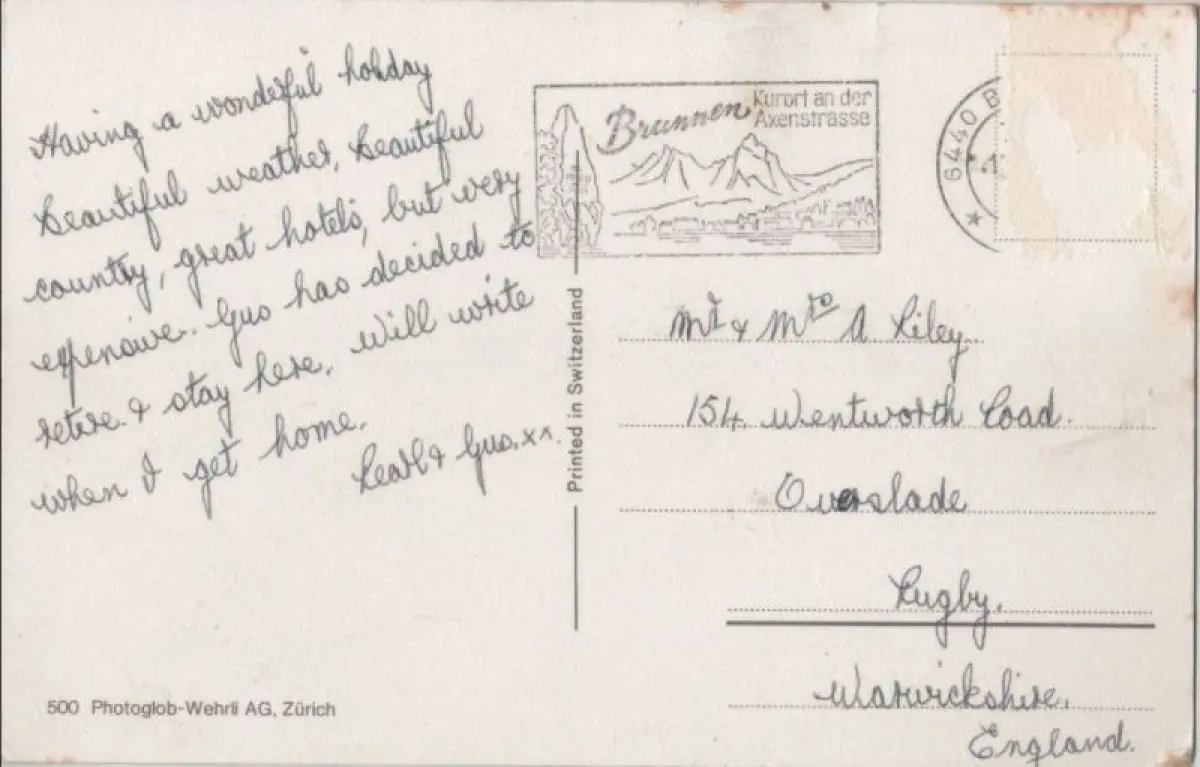 Having a wonderful holiday
Beautiful weather, beautiful
country, great hotels, but very
expensive. Gus has decided to
retire & stay here. Will write
when I get home.
Pearl & Gus. xx.
500 Photoglob-Wehrli AG, Zürich
Printed in Switzerland
Brunnen
Kurort an der
Axenstrasse
6440 B
Mr & Mrs A Riley
154. Wentworth Road.
Overslade
Rugby.
Warwickshire.
England.